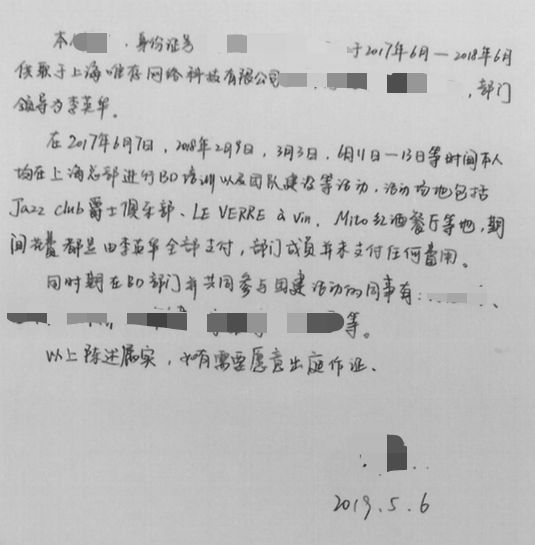 本人 ,身份证号 于2017年6月—2018年6月
供职于上海唯存网络科技有限公司 ,部门
领导为李英华。
在2017年6月7日,2018年2月9日,3月3日,6月11日—13日等时间本人
均在上海总部进行BD培训以及团队建设等活动,活动场地包括
Jazz club爵士俱乐部、LE VERRE à Vin,Mito红酒餐厅等地,期
间花费都是由李英华全部支付,部门成员并未支付任何费用。
同时期在BD部门并共同参与团建活动的同事有:
等。
以上陈述属实,如有需要愿意出庭作证、
2019.5.6